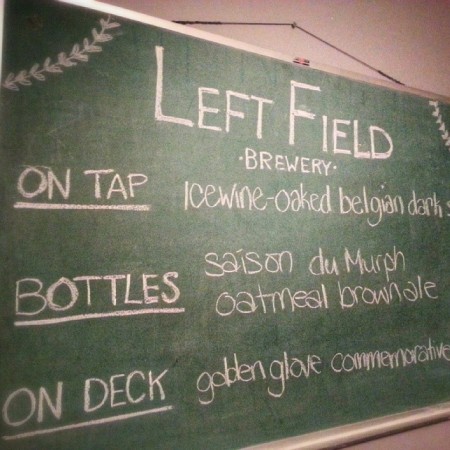 LEFT FIELD
·BREWERY·
ON TAP Icewine-oaked belgian dark
BOTTLES saison du Murph
oatmeal brown ale
ON DECK golden glove commemorative